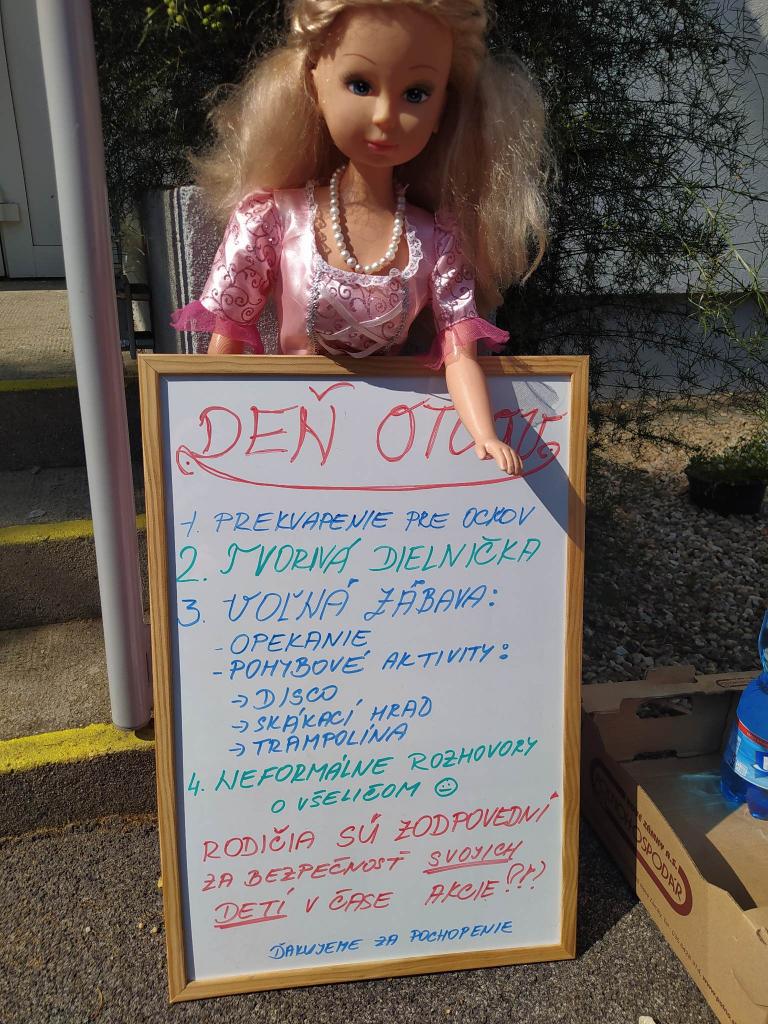 DEŇ OTCOV
1. PREKVAPENIE PRE OCKOV
2. TVORIVÁ DIELNIČKA
3. VOĽNÁ ZÁBAVA:
- OPEKANIE
- POHYBOVÉ AKTIVITY:
→ DISCO
→ SKÁKACÍ HRAD
→ TRAMPOLÍNA
4. NEFORMÁLNE ROZHOVORY
O VŠELIČOM ☺
RODIČIA SÚ ZODPOVEDNÍ
ZA BEZPEČNOSŤ SVOJICH
DETÍ V ČASE AKCIE!!!)
ĎAKUJEME ZA POCHOPENIE